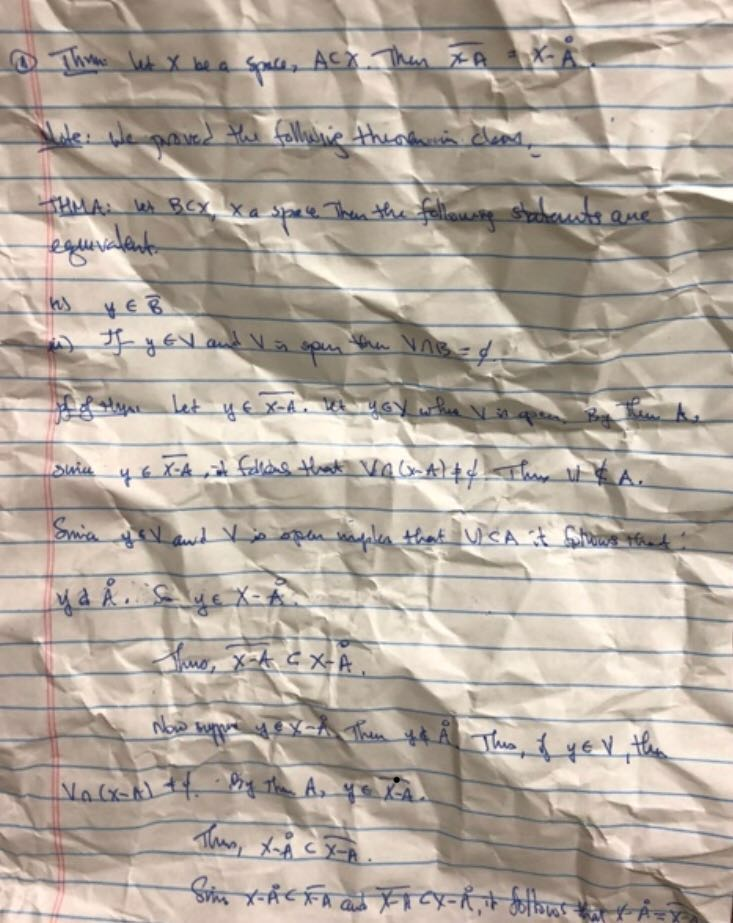 ① Thm: Let X be a space, A⊂X. Then X̅-̅A̅ = X-Å.
Note: We proved the following theorem in class.
THM A: Let B⊂X, X a space. Then the following statements are
equivalent.
y ∈ B̅
If y ∈ V and V is open then V∩B = ∅.
Pf of thm. Let y ∈ X̅-̅A̅. Let y∈V where V is open. By Thm A,
since y ∈ X̅-̅A̅, it follows that V∩(X-A) ≠ ∅. Thus V ⊄ A.
Since y∈V and V is open implies that V⊄A it follows that
y ∉ Å. So y ∈ X-Å.
Thus, X̅-̅A̅ ⊂ X-Å.
Now suppose y ∈ X-Å. Then y ∉ Å. Thus, if y ∈ V, then
V∩(X-A) ≠ ∅. By Thm A, y ∈ X̅-̅A̅.
Thus, X-Å ⊂ X̅-̅A̅.
Since X-Å ⊂ X̅-̅A̅ and X̅-̅A̅ ⊂ X-Å, it follows that X-Å =